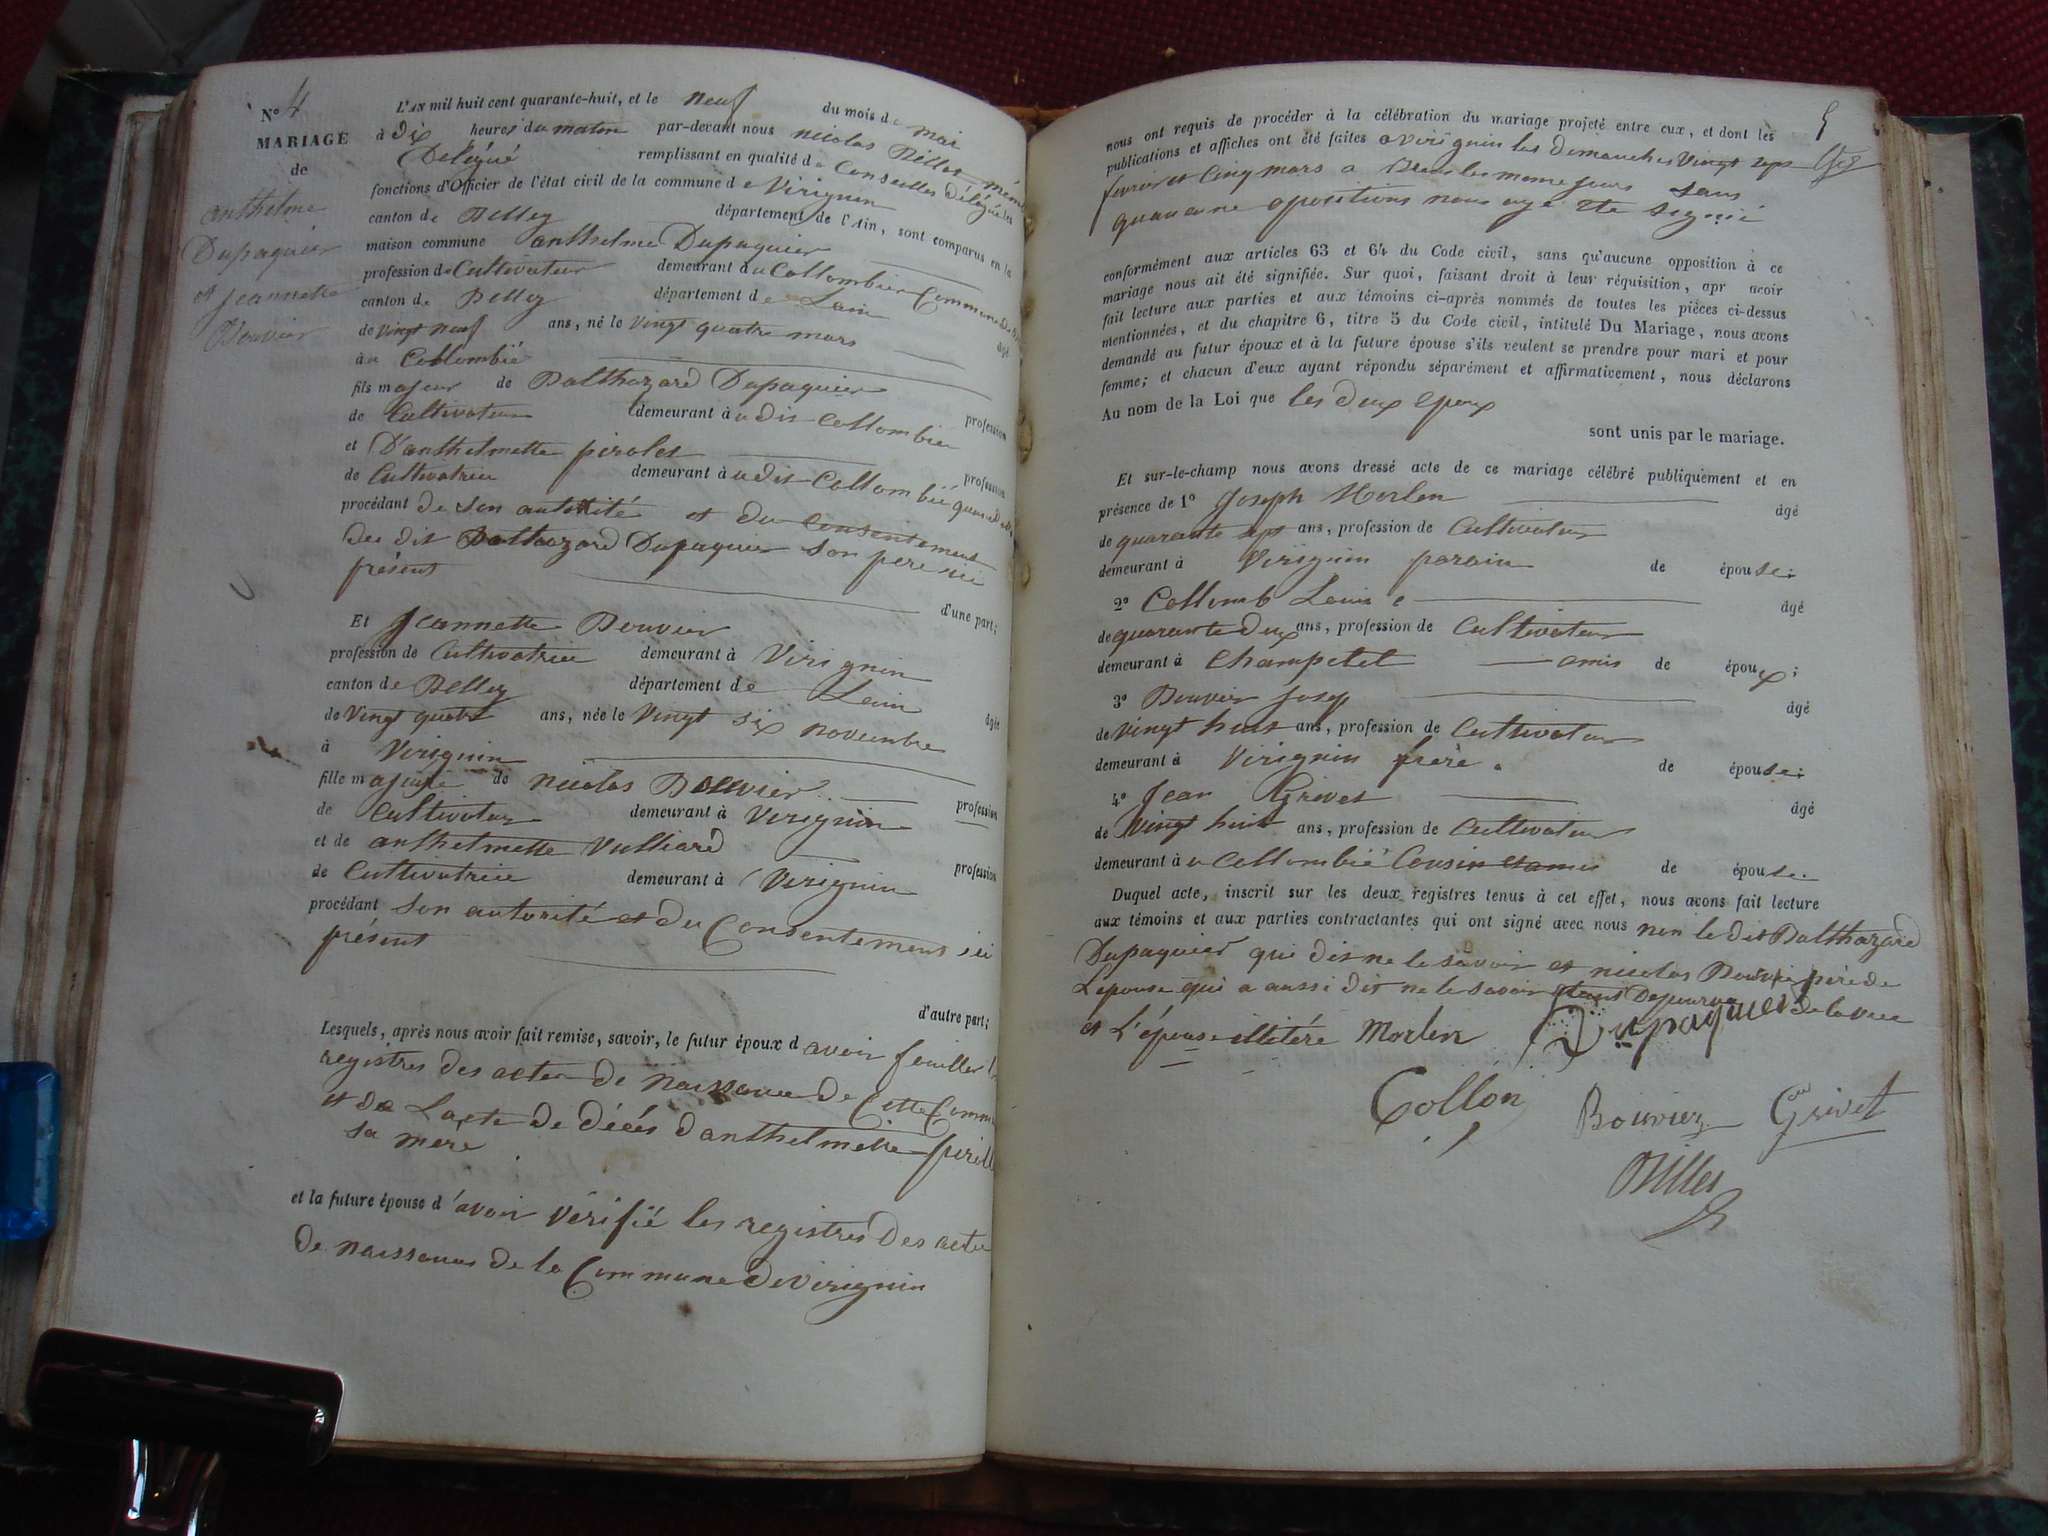 N° 4
MARIAGE
de
anthelme
Dupaquier
et Jeannette
Bouvier
L'AN mil huit cent quarante-huit, et le neuf du mois de mai
à dix heures du matin par-devant nous nicolas Billes
Délégué remplissant en qualité de Conseiller Délégué les
fonctions d'Officier de l'état civil de la commune de Virignin
canton de Belley département de l'Ain, sont comparus en la
maison commune anthelme Dupaquier
profession de Cultivateur demeurant au Collombier Commune de
canton de Belley département de Lain
âgé
de vingt neuf ans, né le vingt quatre mars
au Collombié
fils majeur de Balthazard Dupaquier
profession
de Cultivateur demeurant à udit Collombier
et D'anthelmette pirolet
profession
de Cultivatrice demeurant à udit Collombié
procédant de son autorité et du Consentement
du dit Balthazard Dupaquier son pere ici
présent
d'une part;
Et Jeannette Bouvier
profession de Cultivatrice demeurant à Virignin
canton de Belley département de Lain
âgée
de vingt quatre ans, née le vingt six novembre
à Virignin
fille majeure de nicolas Bouvier
profession
de Cultivateur demeurant à Virignin
et de anthelmette Vulliard
profession
de Cultivatrice demeurant à Virignin
procédant son autorité et du Consentement ici
présent
d'autre part;
Lesquels, après nous avoir fait remise, savoir, le futur époux d avoir feuiller
registres des actes de naissance de Cette Commu
et de Lacte de décés d'anthelmette
sa mere
et la future épouse d'avoir vérifié les registres des actes
de naissances de la Commune de Virignin
5
nous ont requis de procéder à la célébration du mariage projeté entre eux, et dont les
publications et affiches ont été faites a virignin les dimanches vingt sept
fevrier et Cinq mars a les meme jours sans
quaucune opositions nous aye ete signié
conformément aux articles 63 et 64 du Code civil, sans qu'aucune opposition à ce
mariage nous ait été signifiée. Sur quoi, faisant droit à leur réquisition, apr avoir
fait lecture aux parties et aux témoins ci-après nommés de toutes les pièces ci-dessus
mentionnées, et du chapitre 6, titre 5 du Code civil, intitulé Du Mariage, nous avons
demandé au futur époux et à la future épouse s'ils veulent se prendre pour mari et pour
femme; et chacun d'eux ayant répondu séparément et affirmativement, nous déclarons
Au nom de la Loi que les deux Epoux
sont unis par le mariage.
Et sur-le-champ nous avons dressé acte de ce mariage célébré publiquement et en
présence de 1° Joseph Morlen
âgé
de quarante sept ans, profession de Cultivateur
demeurant à Virignin parain de épouse;
2° Collomb Louis
âgé
de quarante deux ans, profession de Cultivateur
demeurant à Champetel amis de époux;
3° Bouvier Josep
âgé
de vingt huit ans, profession de Cultivateur
demeurant à Virignin frère. de épouse;
4° Jean Grivet
âgé
de vingt huit ans, profession de Cultivateur
demeurant à u Collombié Cousin de épouse.
Duquel acte, inscrit sur les deux registres tenus à cet effet, nous avons fait lecture
aux témoins et aux parties contractantes qui ont signé avec nous non le dit Balthazard
Dupaquier qui dit ne le savoir et nicolas Bouvié père de
L'epouse qui a aussi dit ne le savoir de la vue
et L'épouse illitéré Morlen Dupaquier
Collon Bouvier Grivet
Billes